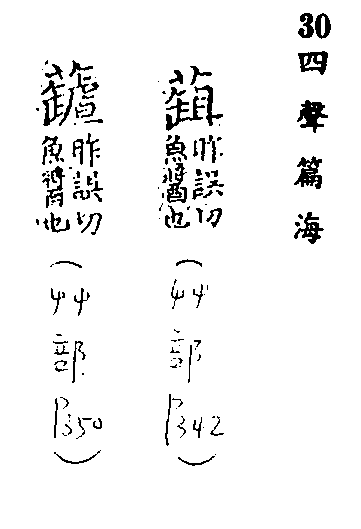 30 四聲篇海
昨誤切
魚醬也
(艸部 P342)
昨誤切
魚醬也
(艸部 P350)